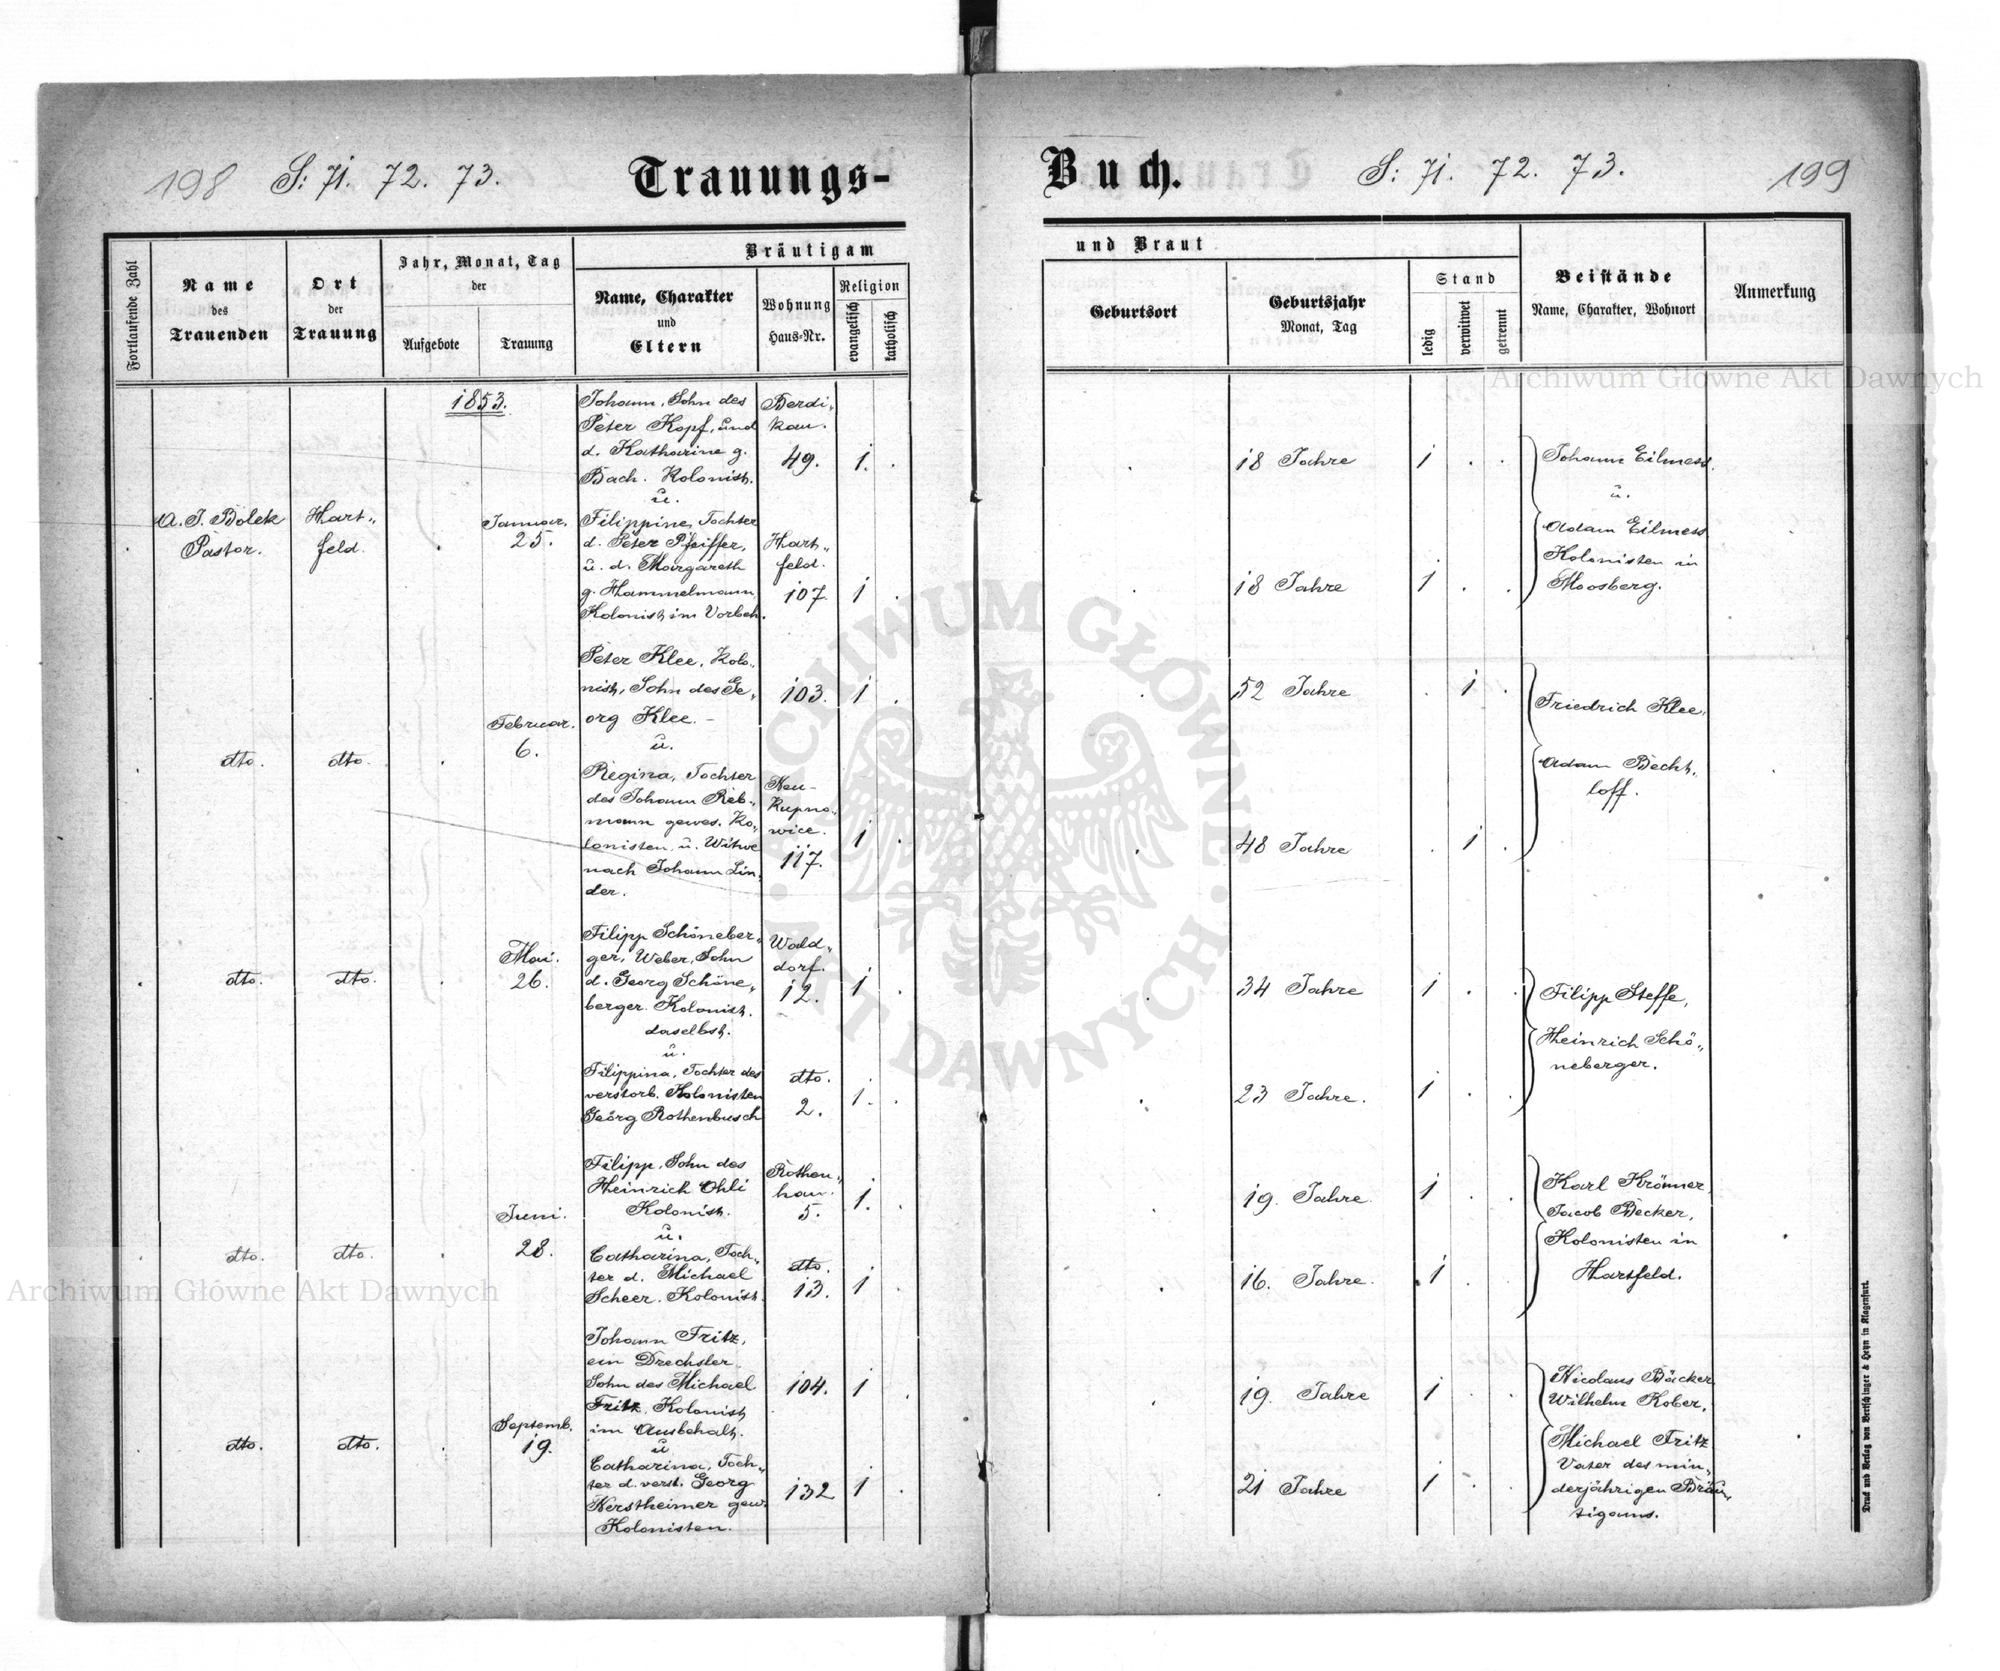 198 S: 71. 72. 73. Trauungs-
Buch. S: 71. 72. 73. 199
Fortlaufende Zahl
Name
des
Trauenden
Ort
der
Trauung
Jahr, Monat, Tag
der
Aufgebote
Trauung
Bräutigam
Name, Charakter
und
Eltern
Wohnung
Haus-Nr.
Religion
evangelisch
katholisch
und Braut
Geburtsort
Geburtsjahr
Monat, Tag
Stand
ledig
verwitwet
getrennt
Beistände
Name, Charakter, Wohnort
Anmerkung
Archiwum Główne Akt Dawnych
1853.
A. J. Bolek
Pastor.
Hart„
feld.
Januar.
25.
Johann, Sohn des
Peter Kopf, und
d. Katharine g.
Bach. Kolonist.
u.
Filippine, Tochter
d. Peter Pfeiffer,
u. d. Margareth
g. Hammelmann
Kolonist im Vorbeh.
Berdi„
kau.
49. 1. .
Hart„
feld.
107. 1 .
18 Jahre 1 . .
18 Jahre 1 . .
Johann Eilmess
u.
Adam Eilmess
Kolonisten in
Moosberg.
dto. dto.
Februar.
6.
Peter Klee, Kolo„
nist, Sohn des Ge„
org Klee. –
u.
Regina, Tochter
des Johann Reb„
mann gewes. Ko„
lonisten, u. Witwe
nach Johann Lin„
der.
103. 1 .
Neu-
Kupno„
wice.
117. 1 .
52 Jahre . 1 .
48 Jahre . 1 .
Friedrich Klee,
Adam Becht„
loff.
dto. dto.
Mai.
26.
Filipp Schöneber„
ger, Weber, Sohn
d. Georg Schöne„
berger. Kolonist.
daselbst.
u.
Filippina, Tochter des
verstorb. Kolonisten
Georg Rothenbusch
Wald„
dorf.
12. 1 .
dto.
2. 1. .
34 Jahre 1 . .
23 Jahre. 1 . .
Filipp Steffe,
Heinrich Schö„
neberger.
dto. dto.
Juni.
28.
Filipp, Sohn des
Heinrich Ohli
Kolonist.
u.
Catharina, Toch„
ter d. Michael
Scheer. Kolonist.
Rothen„
han.
5. 1. .
dto.
13. 1 .
19. Jahre. 1 . .
16. Jahre. 1 . .
Karl Krömer
Jacob Becker,
Kolonisten in
Hartfeld.
Archiwum Główne Akt Dawnych
dto. dto.
Septemb.
19.
Johann Fritz,
ein Drechsler
Sohn des Michael
Fritz, Kolonist
im Ausbehalt.
u
Catharina, Toch„
ter d. verst. Georg
Kerstheimer gew.
Kolonisten.
104. 1 .
132 1 .
19. Jahre 1 . .
21 Jahre 1 . .
Nicolaus Bäcker
Wilhelm Kober,
Michael Fritz
Vater des min„
derjährigen Bräu„
tigams.
Druck und Verlag von Bertschinger & Heyn in Klagenfurt.
ARCHIWUM GŁÓWNE AKT DAWNYCH